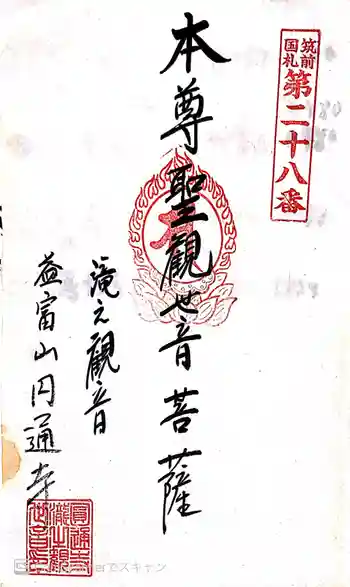 筑前
国札
第二十八番
本尊聖観世音菩薩
滝之観音
益富山円通寺
圓通寺
瀧山観
世音印
でスキャン